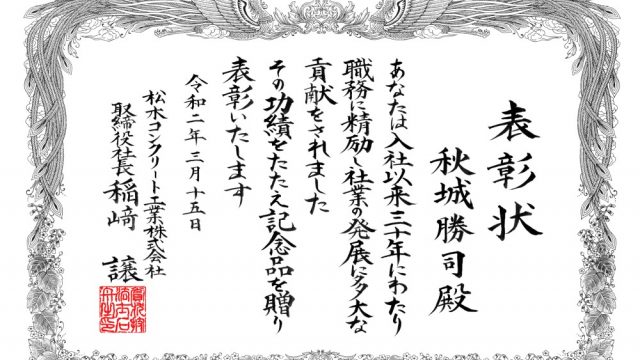 表彰状
秋城勝司殿
あなたは入社以来三十年にわたり
職務に精励し社業の発展に多大な
貢献をされました
その功績をたたえ記念品を贈り
表彰いたします
令和二年三月十五日
松木コンクリート工業株式会社
取締役社長 稲﨑 譲